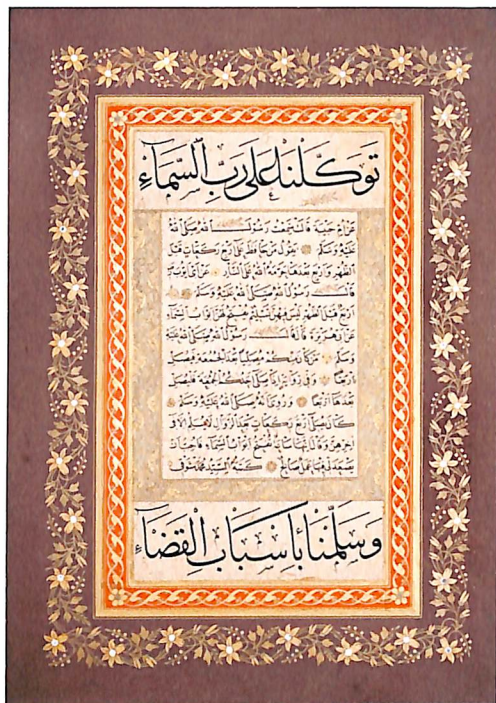 توكلنا على رب السماء
عن ام حبيبة قالت سمعت رسول الله صلى الله
عليه وسلم يقول من حافظ على اربع ركعات قبل
الظهر واربع بعدها حرمه الله على النار عن ابى ايوب
قال رسول الله صلى الله عليه وسلم
اربع قبل الظهر ليس فيهن تسليم تفتح لهن ابواب السماء
عن ابى هريرة قال قال رسول الله صلى الله عليه
وسلم من كان منكم مصليا بعد الجمعة فليصل
اربعا وفى رواية اذا صلى احدكم الجمعة فليصل
بعدها اربعا رسول الله صلى الله عليه وسلم
كان يصلى اربع ركعات بعد الزوال
وقال انها ساعة تفتح ابواب السماء فاحب ان
يصعد لى فيها عمل صالح كتبه السيد محمد
وسلمنا باسباب القضاء